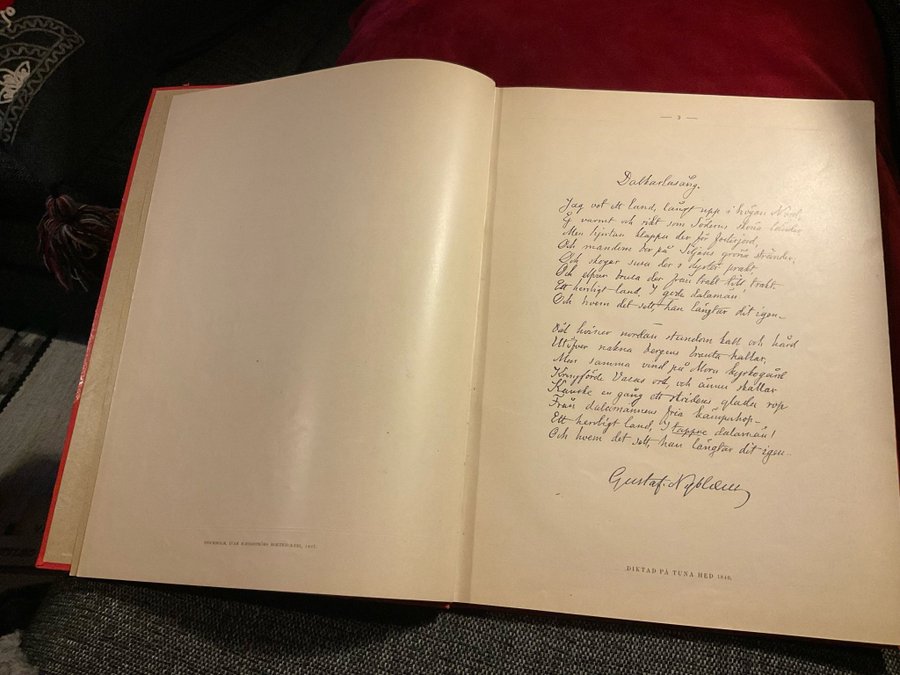 STOCKHOLM, IVAR HÆGGSTRÖMS BOKTRYCKERI, 1897.
— 3 —
Dalkarlasång.
Jag vet ett land, långt upp i högan Nord,
Ej varmt och rikt som Söderns sköna länder,
Men hjertan klappa der för fosterjord,
Och mandom bor på Siljans gröna stränder,
Och skogar susa der i dyster prakt
Och elfvar brusa der från trakt till trakt.
Ett herrligt land, I gode dalamän
Och hvem det sett, han längtar dit igen.—
Väl hviner nordan stundom kall och hård
Utöfver nakna bergens branta hallar,
Men samma vind på Mora kyrkogård
Kringförde Vasas ord, och ännu skallar
Kanske en gång ett stridens glada rop
Från dalamännens fria kämpahop—
Ett herrligt land, I tappre dalamän!
Och hvem det sett, han längtar dit igen.
Gustaf Nyblæus
DIKTAD PÅ TUNA HED 1846.